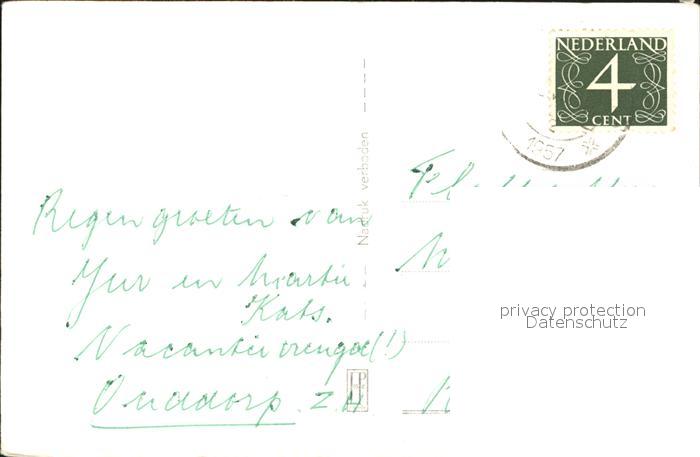 NEDERLAND
4
CENT
1957
Nadruk verboden
Regen groeten van
Jur en Martie
Kats.
Vacantievreugde(!)
Ouddorp Z H
privacy protection
Datenschutz